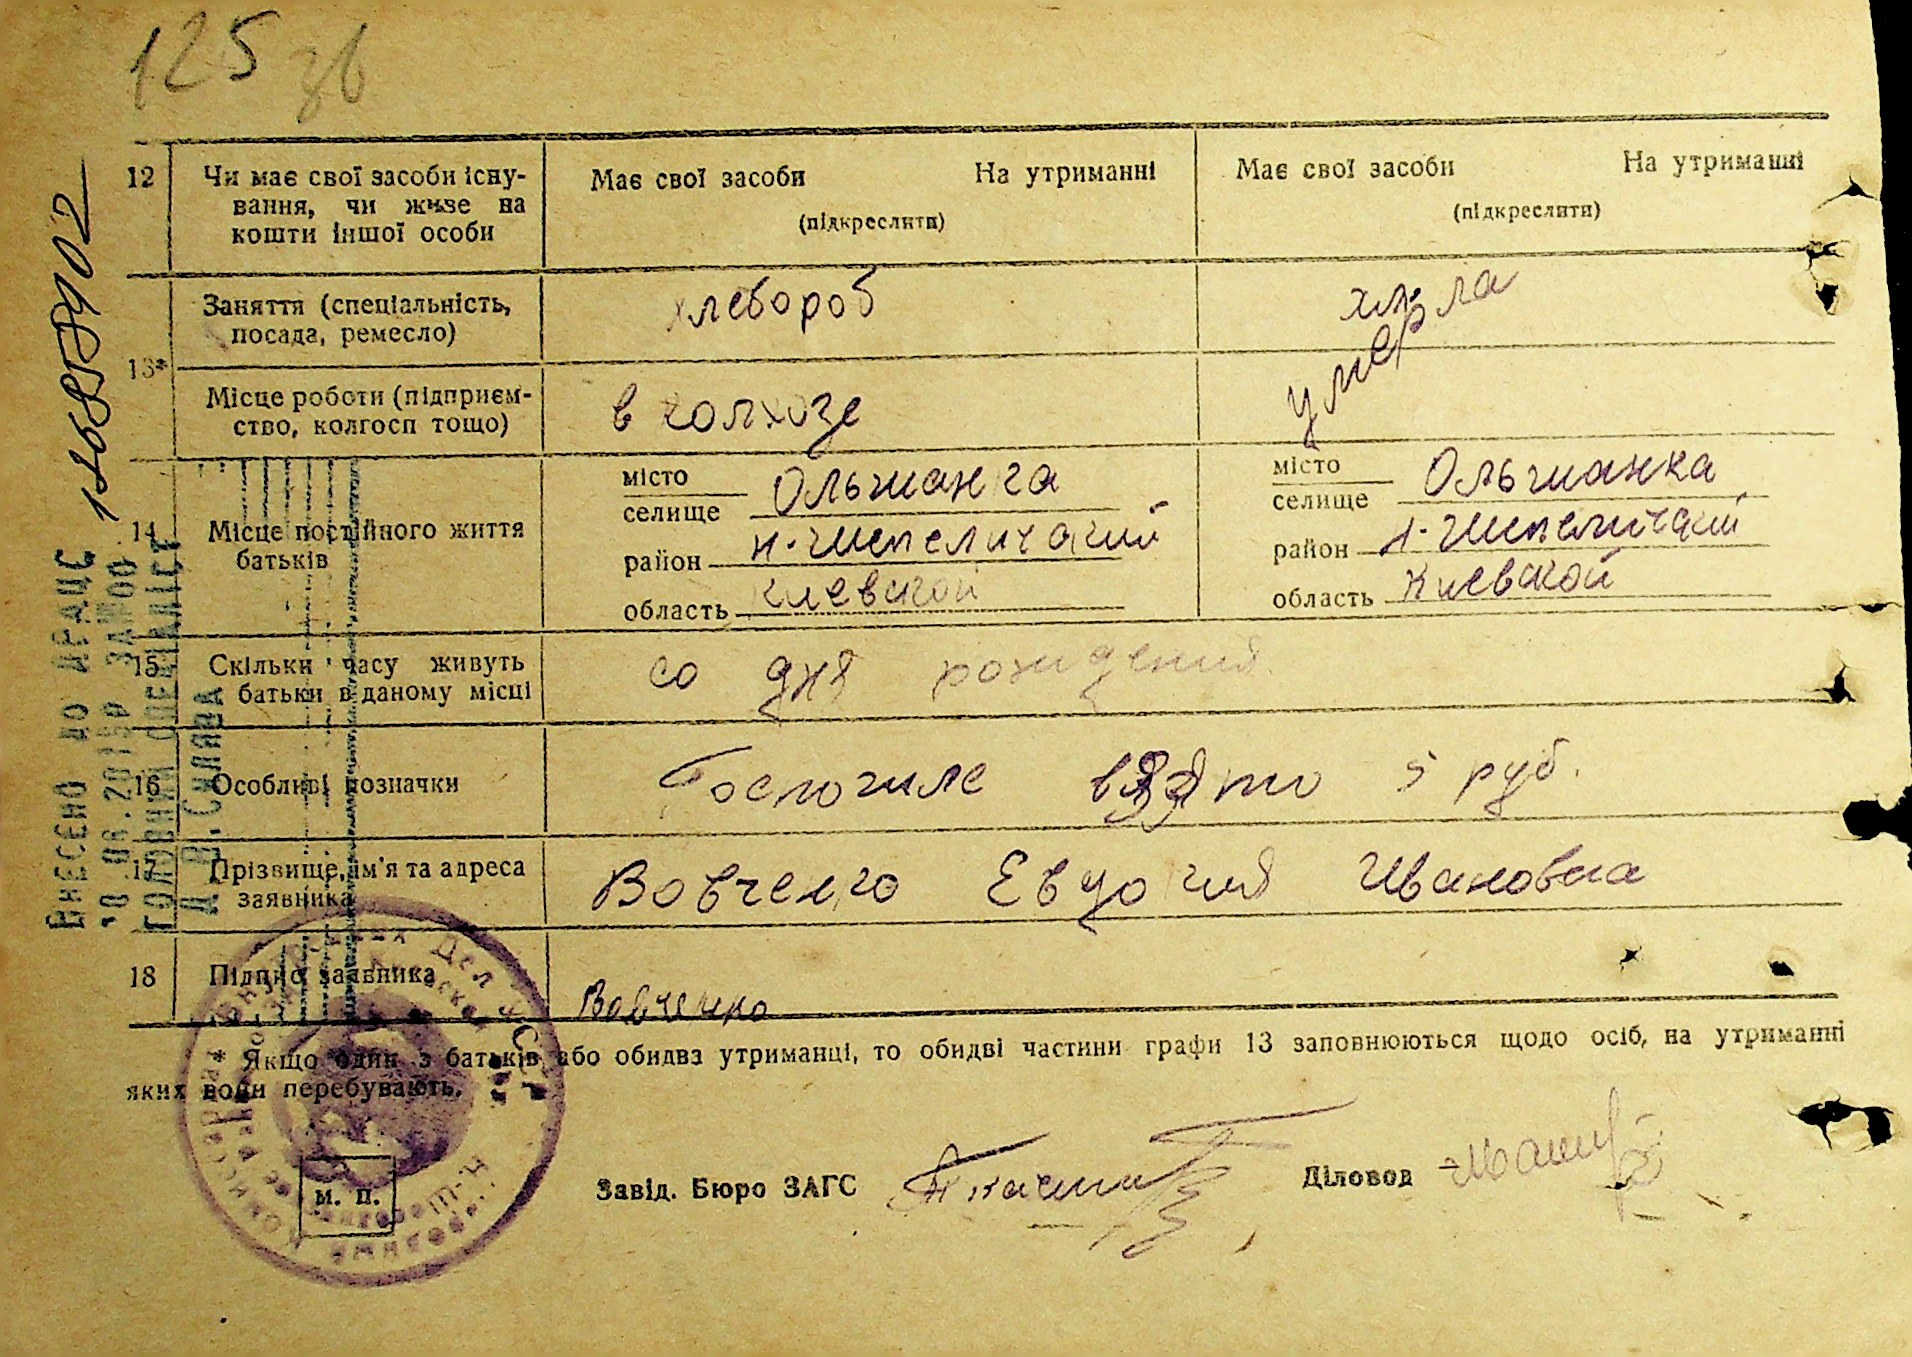 125 зв
12
Чи має свої засоби існу-
вання, чи живе на
кошти іншої особи
Має свої засоби На утриманні
(підкреслити)
Має свої засоби На утриманні
(підкреслити)
13*
Заняття (спеціальність,
посада, ремесло)
хлебороб
хл.
умерла
Місце роботи (підприєм-
ство, колгосп тощо)
в колхозе
14
Місце постійного життя
батьків
місто
селище Ольшанка
район н-шепеличский
область киевской
місто
селище Ольшанка
район н-шепеличский
область Киевской
15
Скільки часу живуть
батьки в даному місці
со дня рождения
16
Особливі позначки
взято 5 руб.
17
Прізвище, ім'я та адреса
заявника
Вовченко Евдокия Ивановна
18
Підпис заявника
Вовченко
* Якщо один з батьків або обидва утриманці, то обидві частини графи 13 заповнюються щодо осіб, на утриманні
яких вони перебувають.
М. П.
Завід. Бюро ЗАГС
Діловод
Внесено до ДРАЦС
Головний спеціаліст